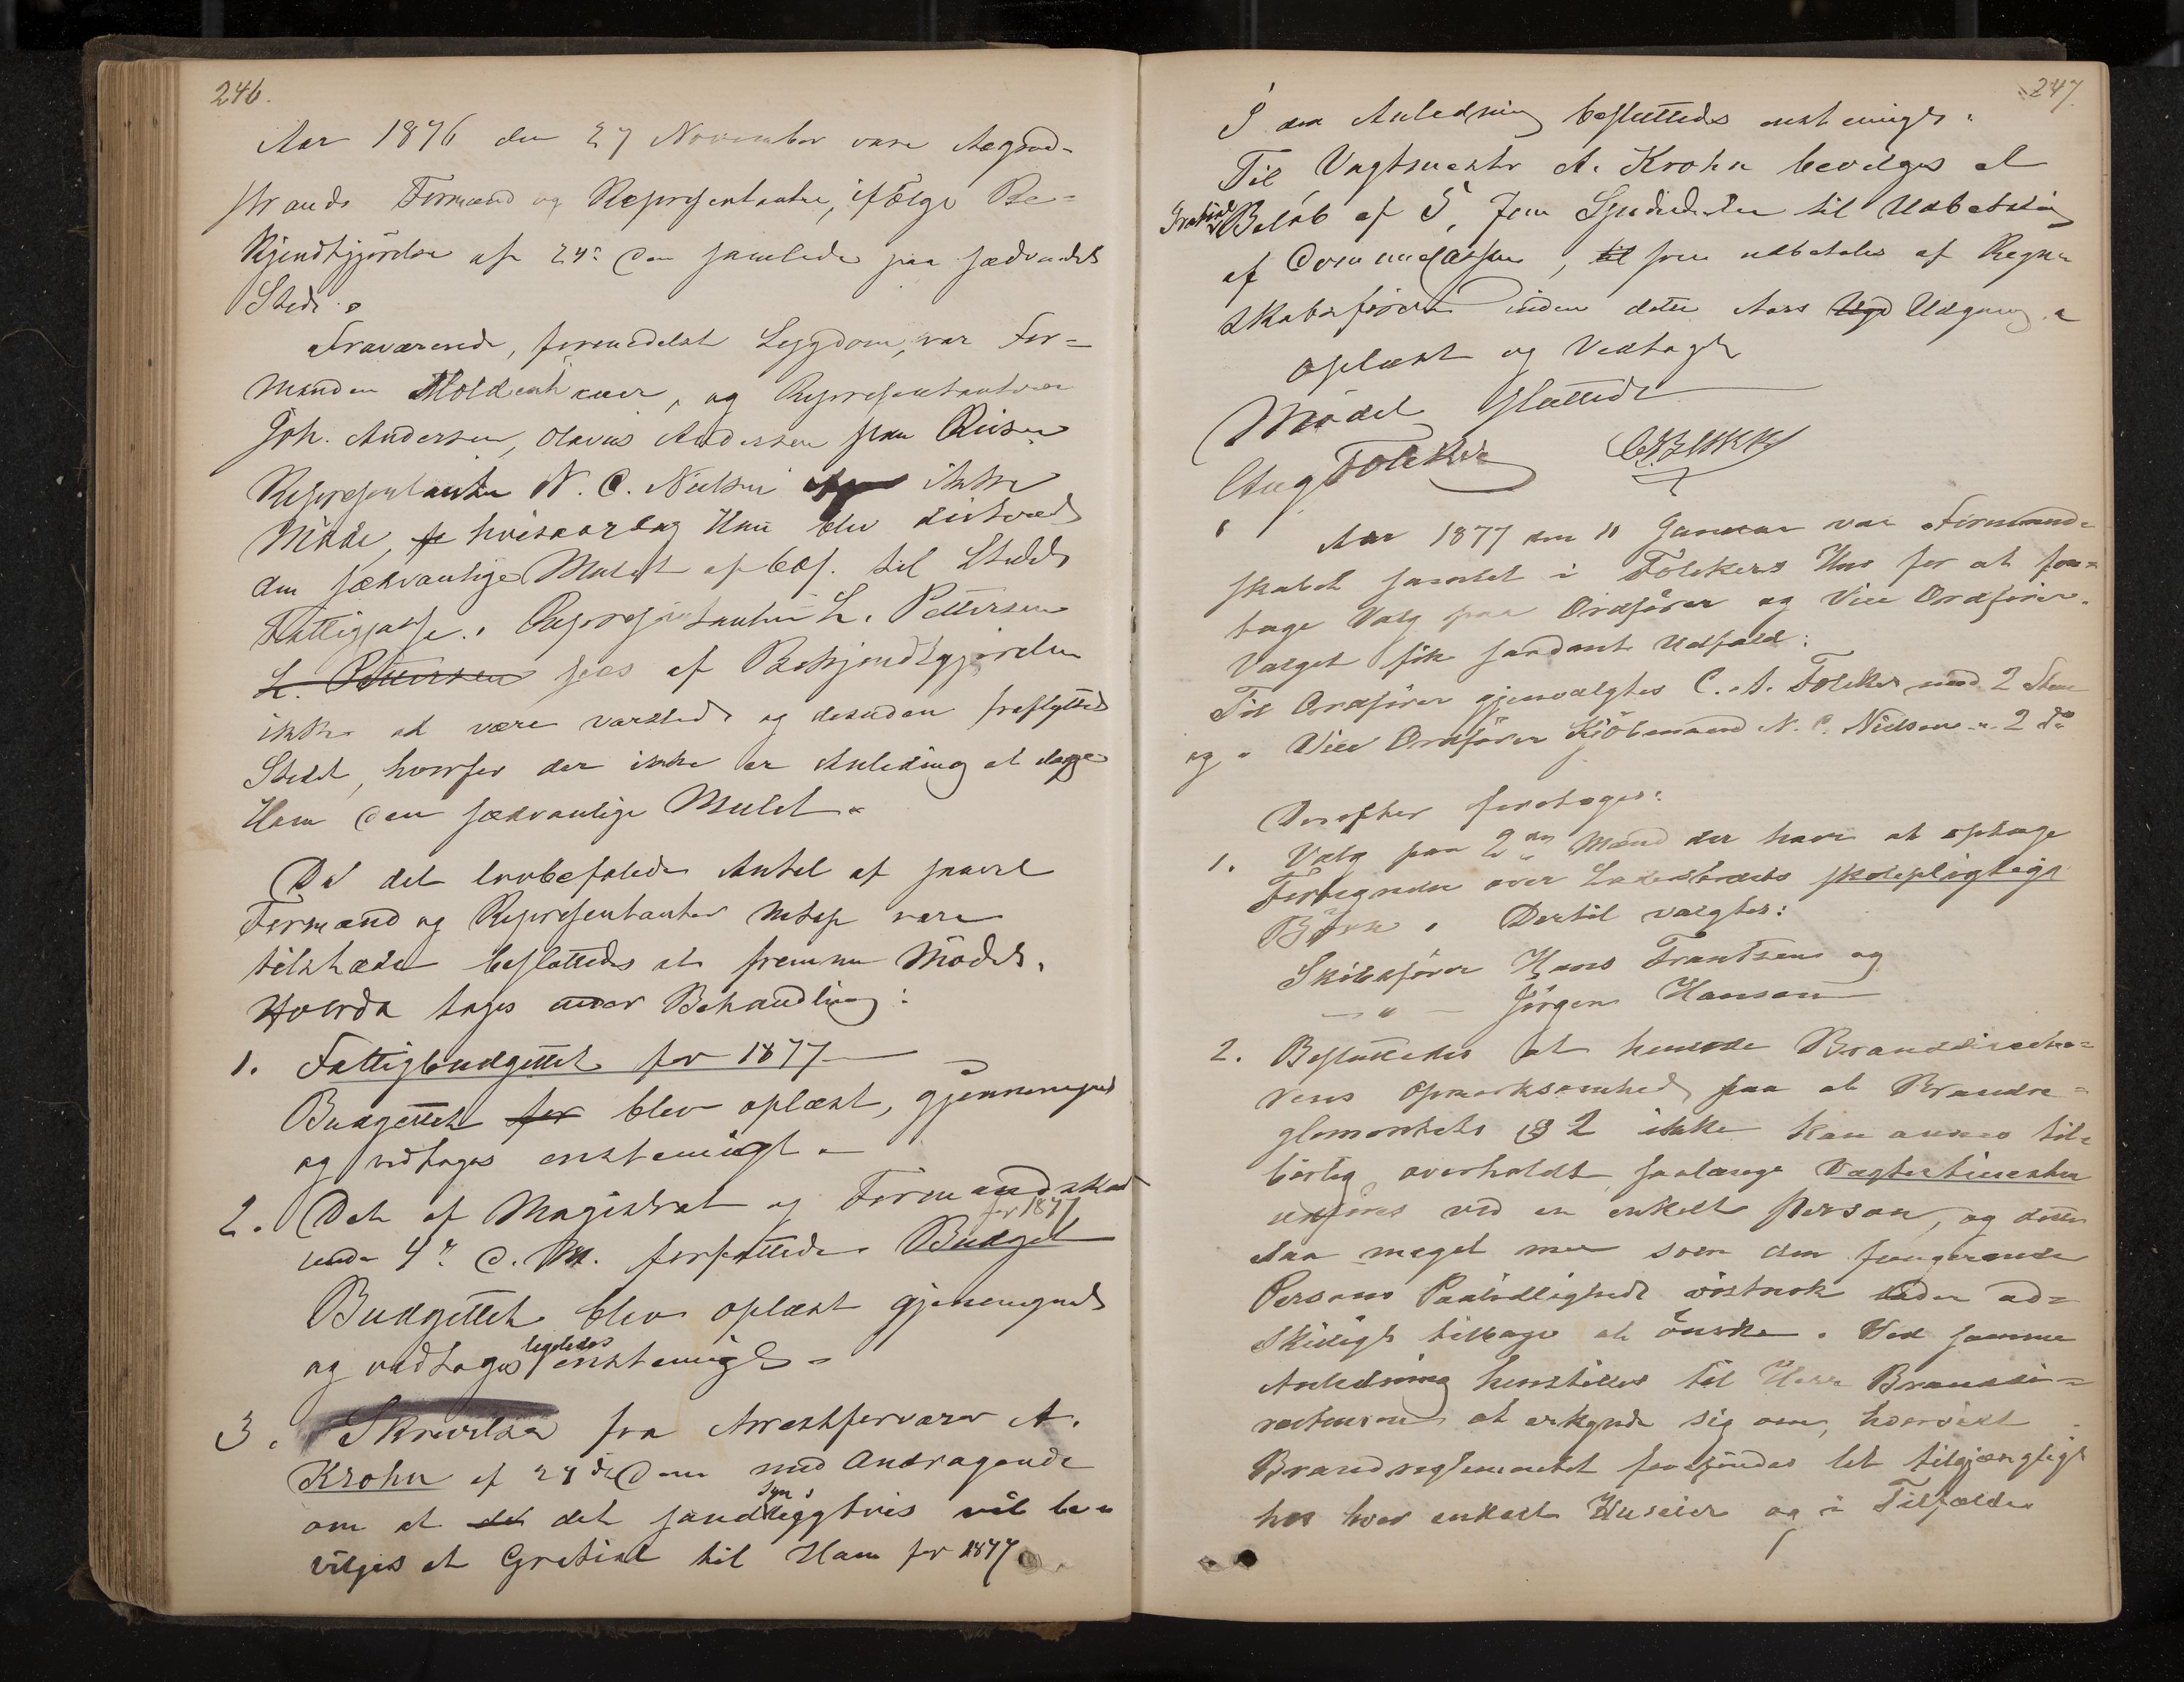 246.
Aar 1876 den 27 November vare Aasgaard-
strands Formænd og Repræsentanter, ifølge Be-
kjendtgjørelse af 24de dens samlede paa sædvanlig
Sted.
Fraværende, formedelst Sygdom, var For-
manden Moldenhauer, og Repræsentanterne
Joh. Andersen, Olavus Andersen paa Reise
Repræsentanten N. C. Nielsen ikke
Møde, hvisaarsag Ham blev dicteret
den sædvanlige Mulct af 60 s. til Stedets
Fattigkasse. Repræsentanten L. Pettersen
L. Pettersen sees af Bekjendtgjørelsen
ikke at være varslet og desuden fraflyttet
Stedet, hvorfor der ikke er Anledning at ilægge
Ham den sædvanlige Mulct.
Da det lovbefalede Antal af saavel
Formænd og Repræsentanter vare
tilstæde besluttedes at fremme Mødet.
Hvorda toges under Behandling:
1. Fattigbudgettet for 1877
Budgettet for blev oplæst, gjennemgaaet
og vedtoges enstemigt.
2. Det af Magistrat og Formandskab
for 1877
under 4de d. M. forfattede Budget
Budgettet blev oplæst gjennemgaaet
ligeledes
og vedtoges enstemigt.
3. Skrivelse fra Arrestforvarer A.
Krohn af 24de dens med Andragende
om at det det sandsynligvis vil be-
vilges et Gratiale til Ham for 1877
247.
I den Anledning besluttedes enstemigt:
Til Vagtmester A. Krohn bevilges et
Gratiale Beløb af 5, fem Speciedaler til Udbetaling
af Communekassen, til som udbetales af Regn-
skabsføreren inden dette Aars Udgang.
Oplæst og Vedtaget
Mødet sluttet
Aug Foleker
Aar 1877 den 11 Januar var Formand-
skabet samlet i Folekers Hus for at fore-
tage Valg paa Ordfører og Vice Ordfører.
Valget fik saadant Udfald:
Til Ordfører gjenvalgtes C. A. Foleker med 2 Stem
og " Vice Ordfører Kjøbmand N. C. Nielsen " 2 do
Derefter foretoges:
1. Valg paa 2de Mænd der have at optage
Fortegnelse over Ladestedets skolepligtige
Børn. Dertil valgtes:
Skibsfører Hans Frantzen og
— " — Jørgen Hansen
2. Besluttedes at henlede Branddirectø-
rens Opmærksomhed paa at Brandre-
glementets § 2 ikke kan ansees til-
børlig overholdt saalænge Vægtertjenesten
udføres ved en enkelt Person, og dette
saa meget mer som den fungerende
Persons Paalidelighed vistnok lader ad-
skilligt tilbage at ønske. Ved samme
Anledning henstilles til Herr Branddi-
recteuren at erkynde sig om, hvorvidt
Brandreglementet forefindes let tilgjængeligt
hos hver enkelt Huseier og i Tilfælde